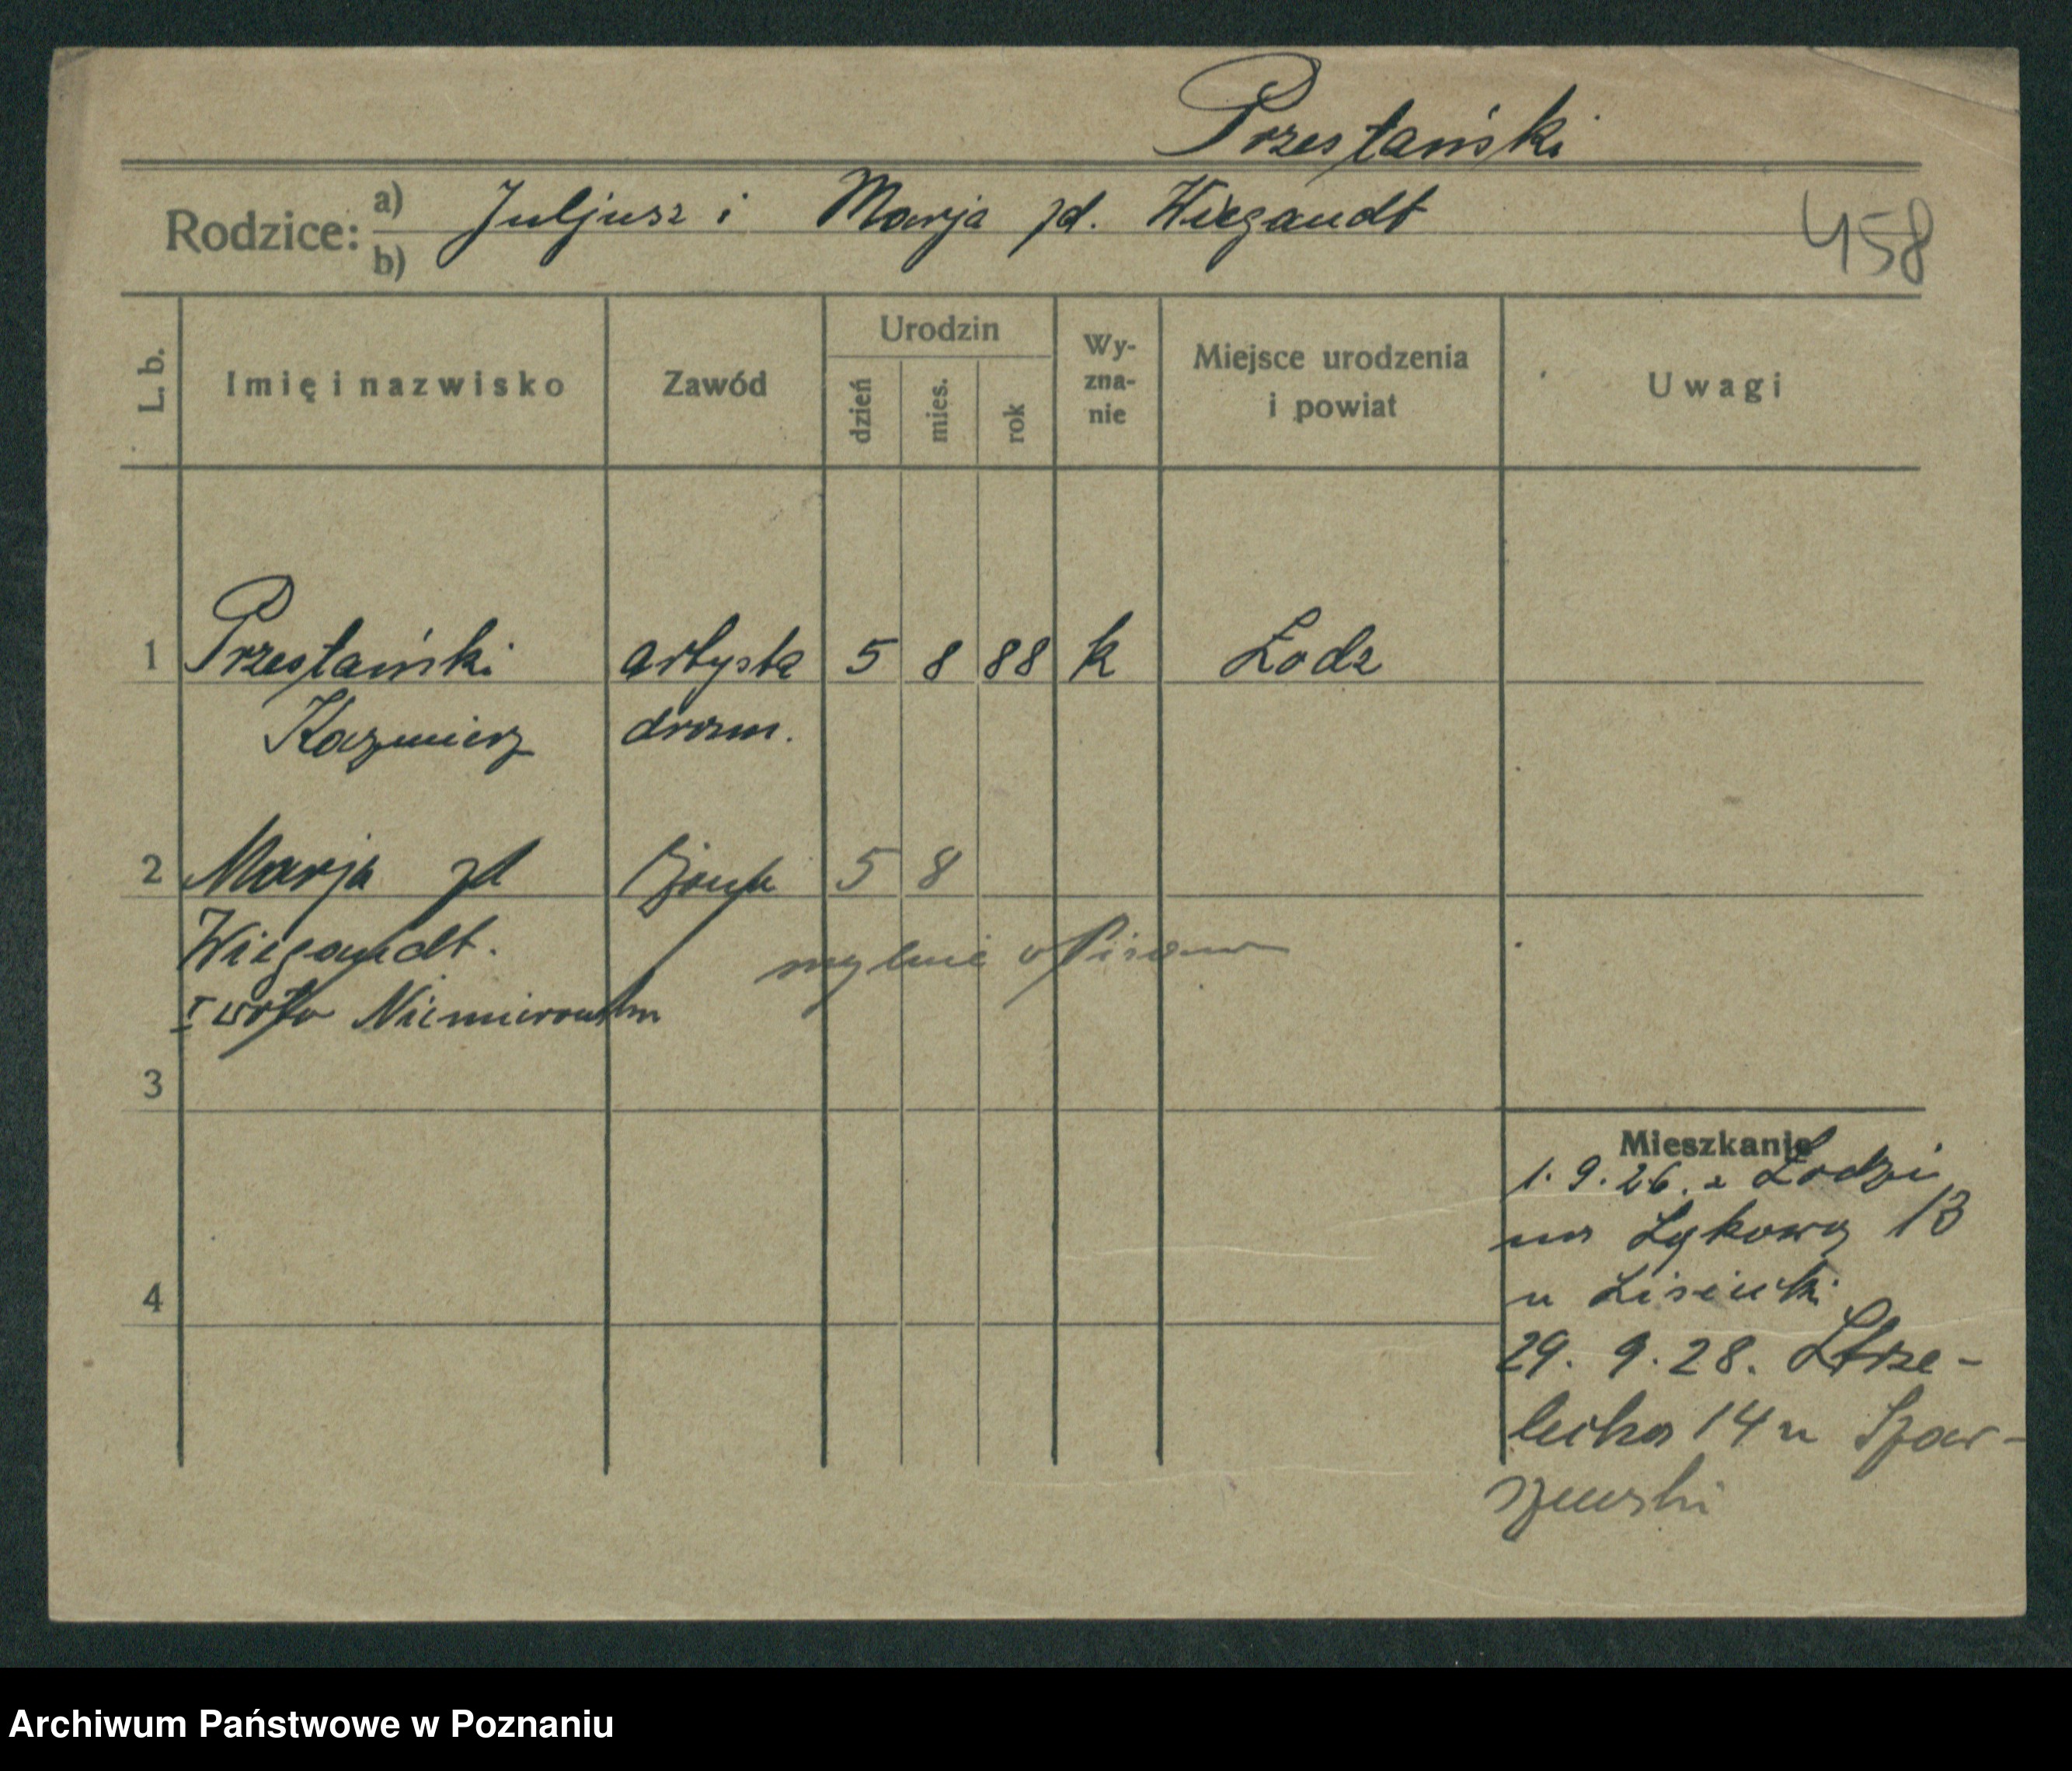 Przestański
Rodzice: a) b) Juljusz i Marja zd. Wiegandt
458
L. b.
Imię i nazwisko
Zawód
Urodzin
dzień
mies.
rok
Wy-
zna-
nie
Miejsce urodzenia
i powiat
Uwagi
1 Przestański artysta 5 8 88 k Łodz
Kazmierz dram.
2 Marja zd żona 5 8
Wiegandt.
mylnie
I voto
3
4
Mieszkanie
1. 9. 26. z Łodzi
na Łąkowa 13
u Lisiecki
29. 9. 28. Strze-
lecka 14 u Szar-
szewski
Archiwum Państwowe w Poznaniu